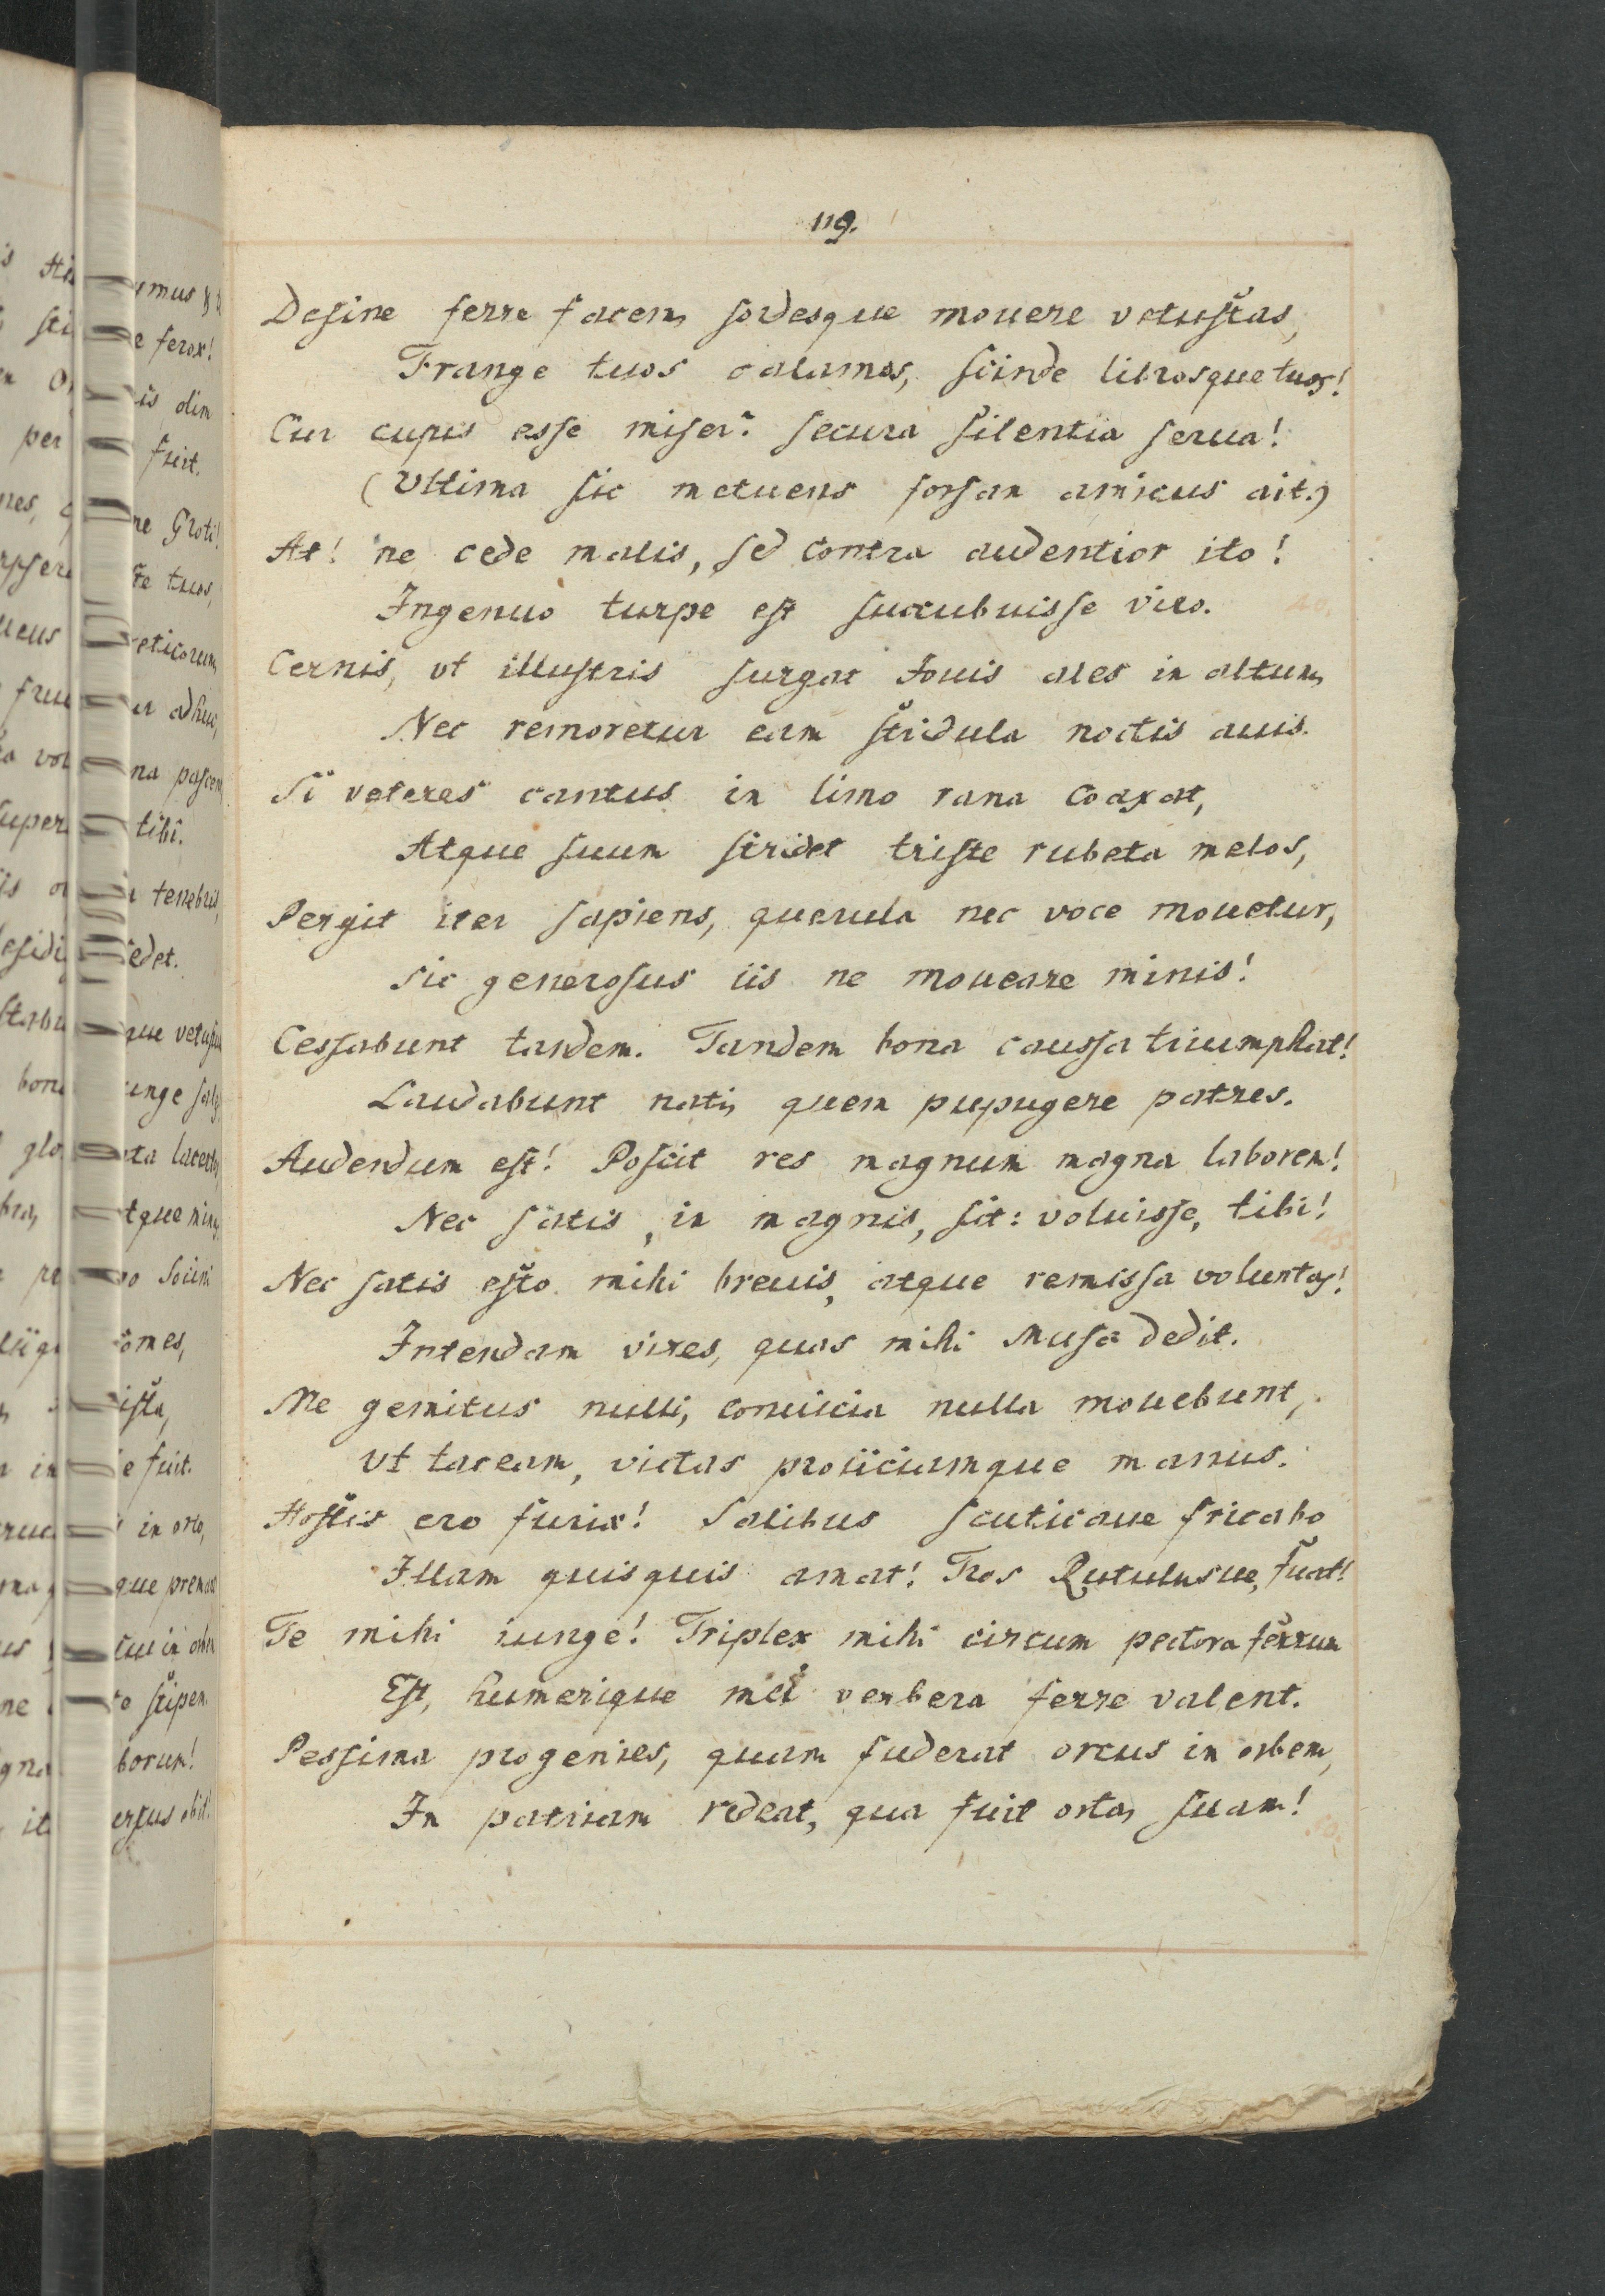 119.
Desine ferre facem, sordesque mouere vetustas,
Frange tuos calamos, scinde librosque tuos!
Cur cupis esse miser? secura silentia serua!
(Vltima sic metuens forsan amicus ait.)
At! ne cede malis, sed contra audentior ito!
Ingenuo turpe est succubuisse viro.
Cernis, vt illustris surgat Iouis ales in altum,
Nec remoretur eam stridula noctis auis.
Si veteres cantus in limo rana coaxat,
Atque suum stridet triste rubeta melos,
Pergit iter sapiens, querula nec voce mouetur,
Sic generosus iis ne moueare minis!
Cessabunt tandem. Tandem bona caussa triumphat!
Laudabunt nati, quem pupugere patres.
Audendum est! Poscit res magnum magna laborem!
Nec satis, in magnis, sit: voluisse, tibi!
Nec satis esto mihi breuis, atque remissa voluntas!
Intendam vires, quas mihi Musa dedit.
Me gemitus nulli, conuicia nulla mouebunt,
Vt taceam, victas proiiciamque manus.
Hostis ero furiæ! Salibus scuticaue fricabo
Illam quisquis amat! Tros Rutulusue, fuat!
Te mihi iunge! Triplex mihi circum pectora ferrum
Est, humerique mei verbera ferre valent.
Pessima progenies, quam fuderat orcus in orbem,
In patriam redeat, qua fuit orta, suam!